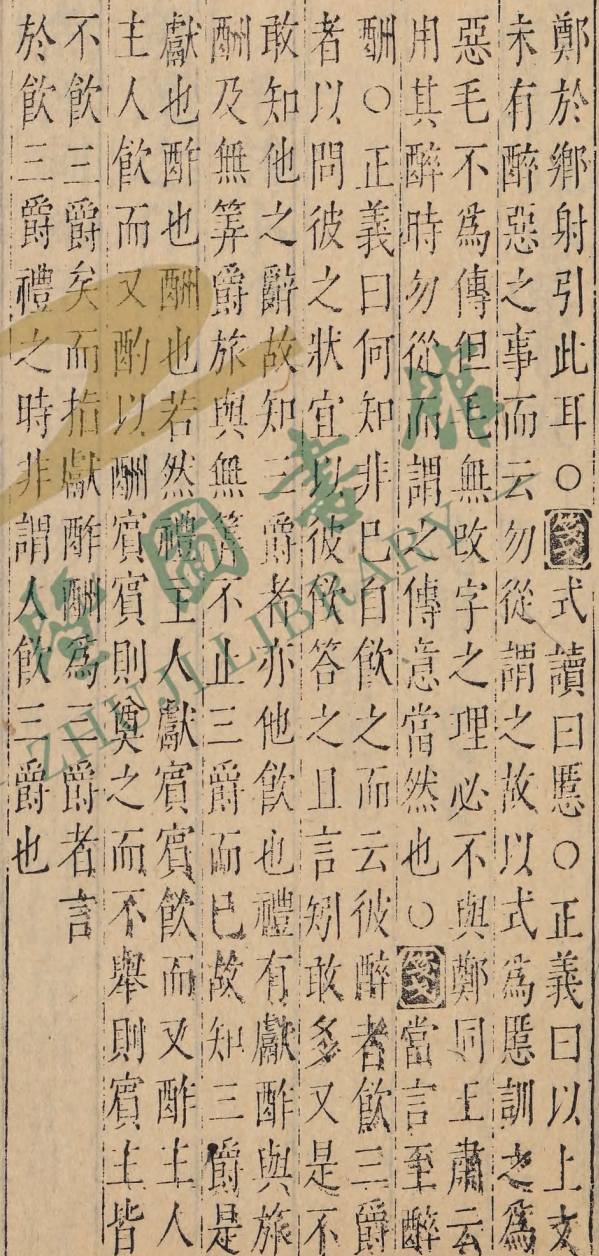 鄭於鄉射引此耳○箋式讀曰慝○正義曰以上文
未有醉惡之事而云勿從謂之故以式為慝訓之為
惡毛不為傳但毛無改字之理必不與鄭同王肅云
用其醉時勿從而謂之傳意當然也○箋當言至醉
酬○正義曰何知非已自飲之而云彼醉者飲三爵
者以問彼之狀宜以彼飲答之且言矧敢多又是不
敢知他之辭故知三爵者亦他飲也禮有獻酢與旅
酬及無筭爵旅與無筭不止三爵而已故知三爵是
獻也酢也酬也若然禮主人獻賓賓飲而又酢主人
主人飲而又酌以酬賓賓則奠之而不舉則賓主皆
不飲三爵矣而指獻酢酬為三爵者言
於飲三爵禮之時非謂人飲三爵也
諸暨圖書館
ZHUJI LIBRARY